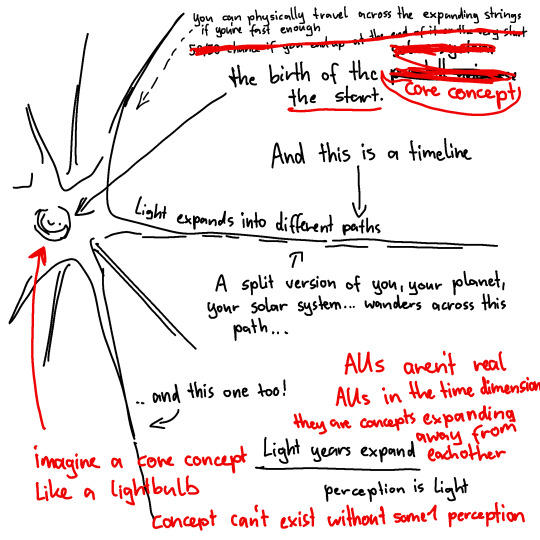 you can physically travel across the expanding strings
if youre fast enough
50/50 chance if you end up at the end of it or the very start
the birth of the
the start.
core concept
And this is a timeline
Light expands into different paths
A split version of you, your planet,
your solar system... wanders across this
path...
AUs aren't real
AUs in the time dimension
they are concepts expanding
away from
eachother
.. and this one too!
Light years expand
imagine a core concept
Like a lightbulb
perception is light
Concept can't exist without some1 perception